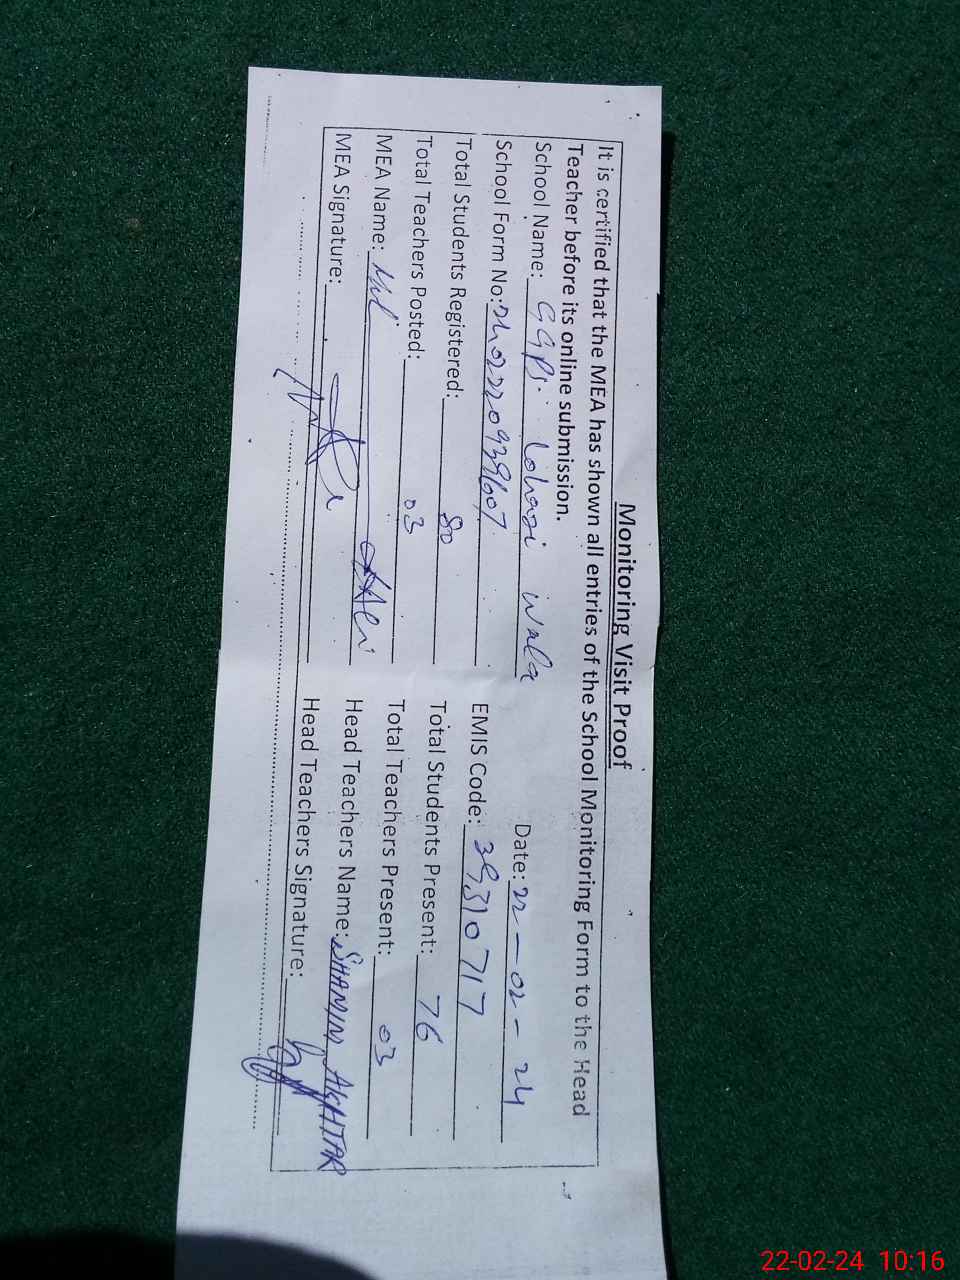 Monitoring Visit Proof
It is certified that the MEA has shown all entries of the School Monitoring Form to the Head
Teacher before its online submission.
Date: 22-02-24
School Name: GGPS. Lohari Wala
School Form No: EMIS Code: 39310717
Total Students Registered: 80 Total Students Present: 76
Total Teachers Posted: 03 Total Teachers Present: 03
MEA Name: Head Teachers Name: SHAMIM AKHTAR
MEA Signature: Head Teachers Signature:
22-02-24 10:16